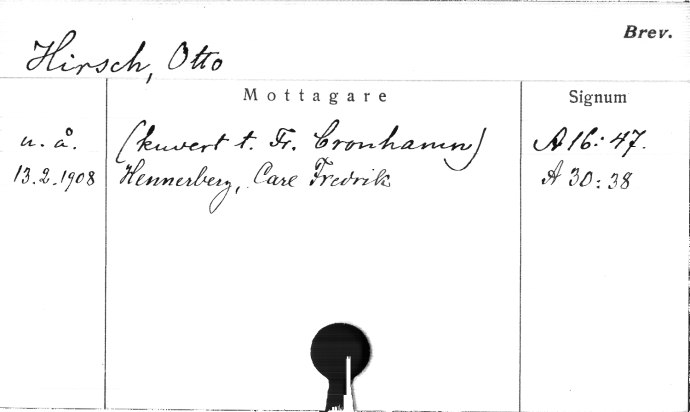 Brev.
Hirsch, Otto
Mottagare Signum
u. å. (kuvert t. Fr. Cronhamn) A 16: 47.
13.2.1908 Hennerberg, Carl Fredrik A 30: 38